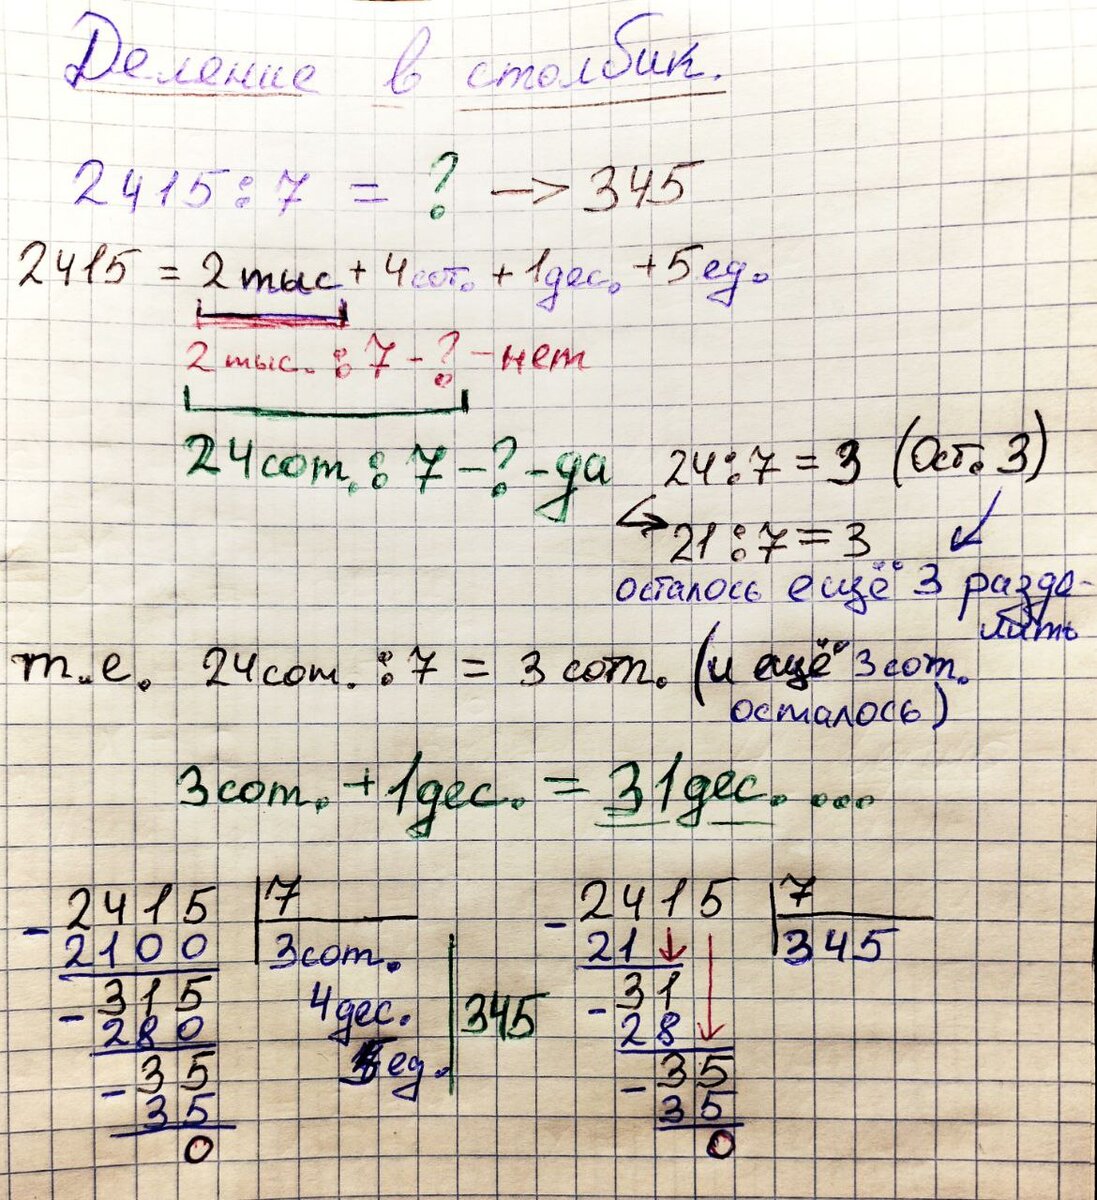 Деление в столбик.
2415:7 = ? -> 345
2415 = 2 тыс + 4 сот. + 1 дес. + 5 ед.
2 тыс. : 7 - ? - нет
24 сот. : 7 - ? - да
24:7 = 3 (Ост. 3)
21:7 = 3
осталось ещё 3 разде-
лить
т.е. 24 сот. : 7 = 3 сот. (и ещё 3 сот.
осталось)
3 сот. + 1 дес. = 31 дес. ...
- 2415 | 7
2100 3 сот.
- 315 4 дес.
280 5 ед.
345
- 35
35
0
- 2415 | 7
21 345
- 31
28
- 35
35
0